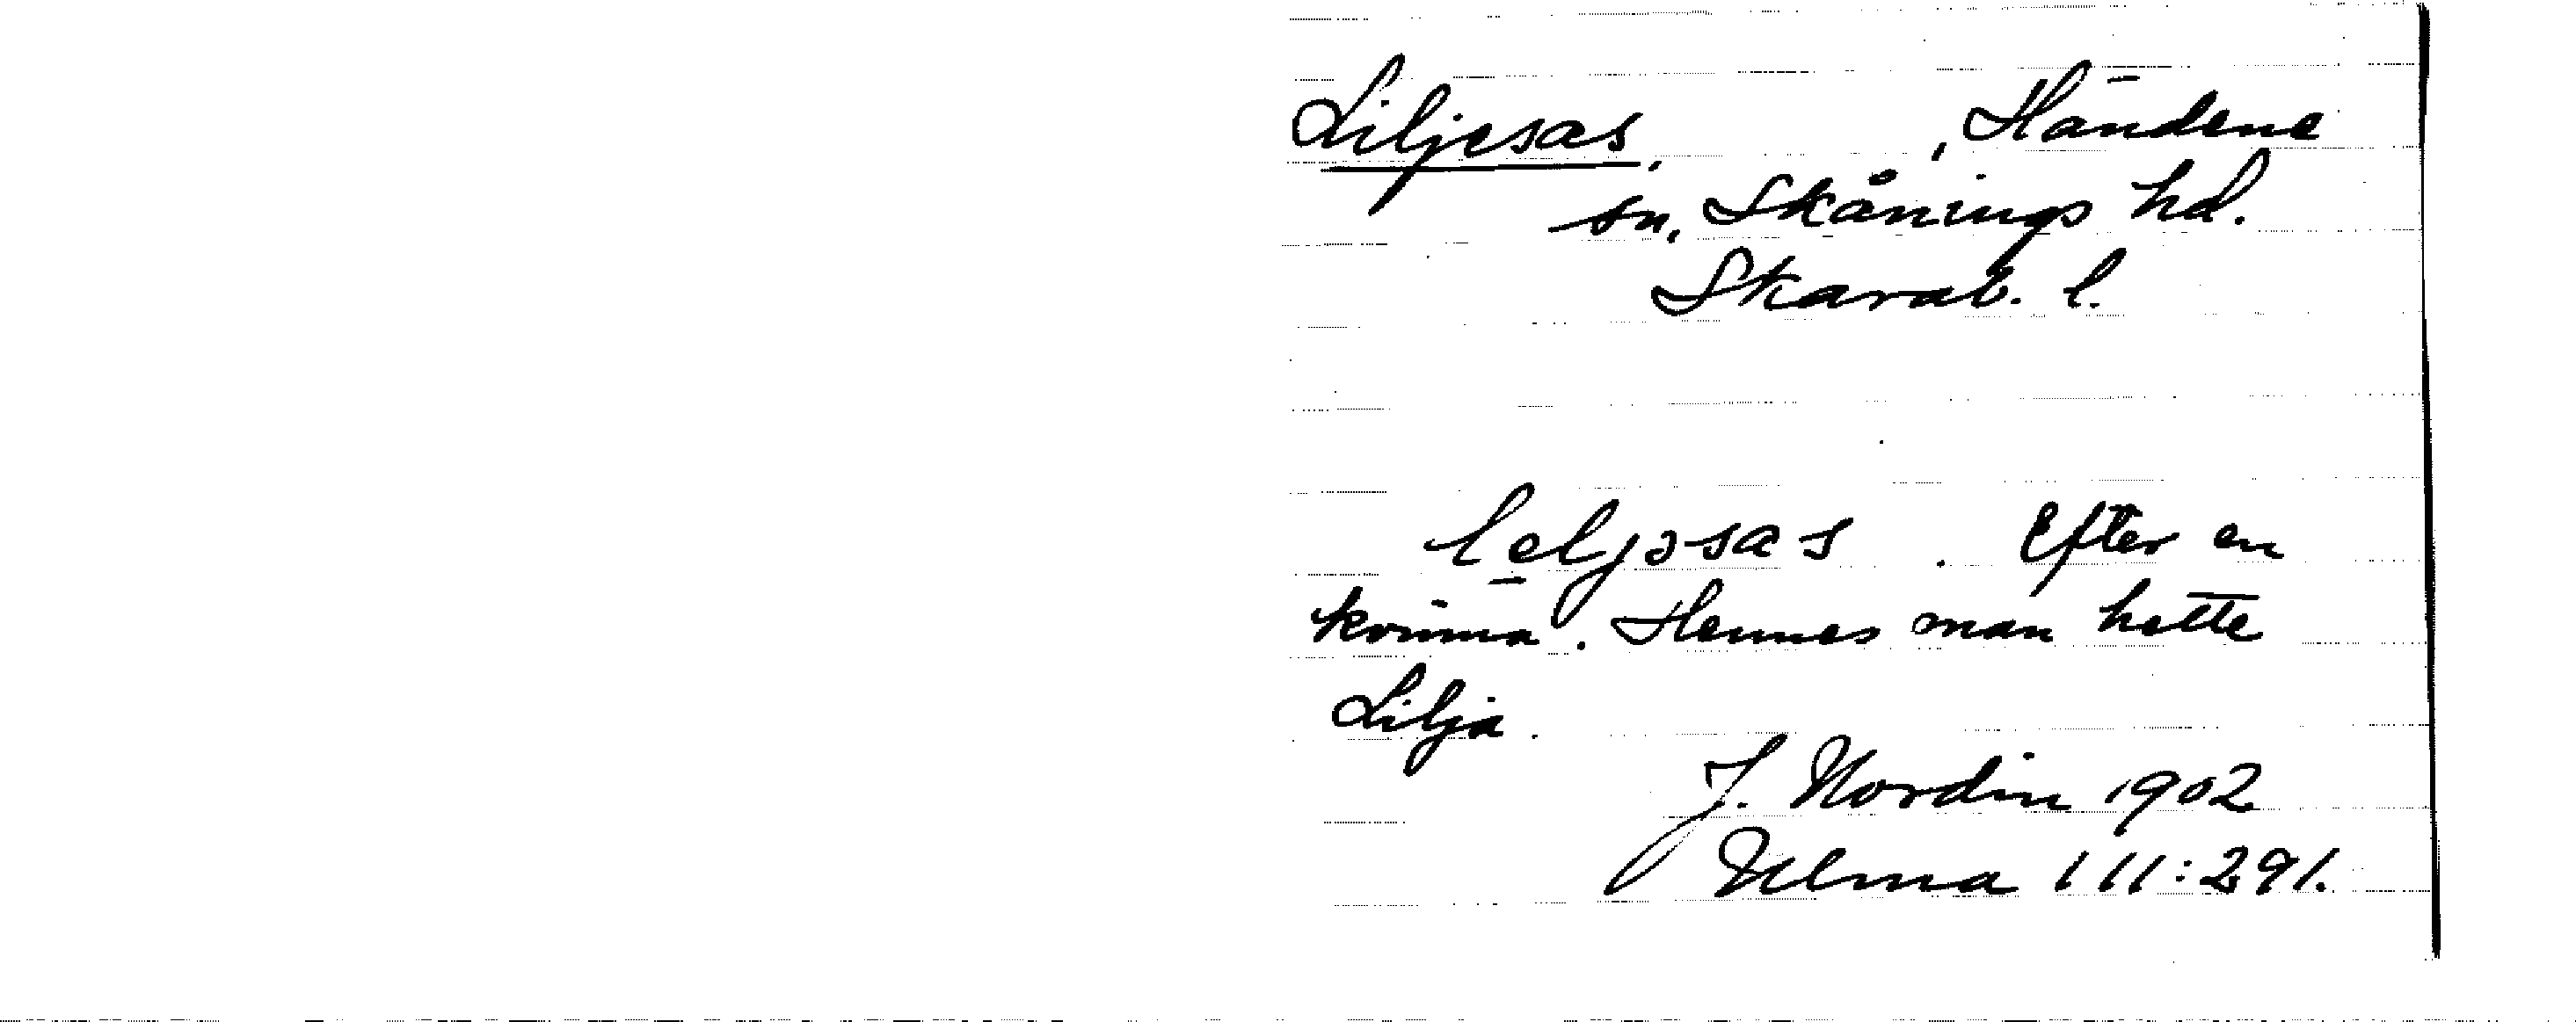 Liljesas, , Händene
sn, Skånings hd.
Skarab. l.
leljəsas . Efter en
kvinna. Hennes man hette
Lilja.
J. Nordin 1902
Ulma 111:291.